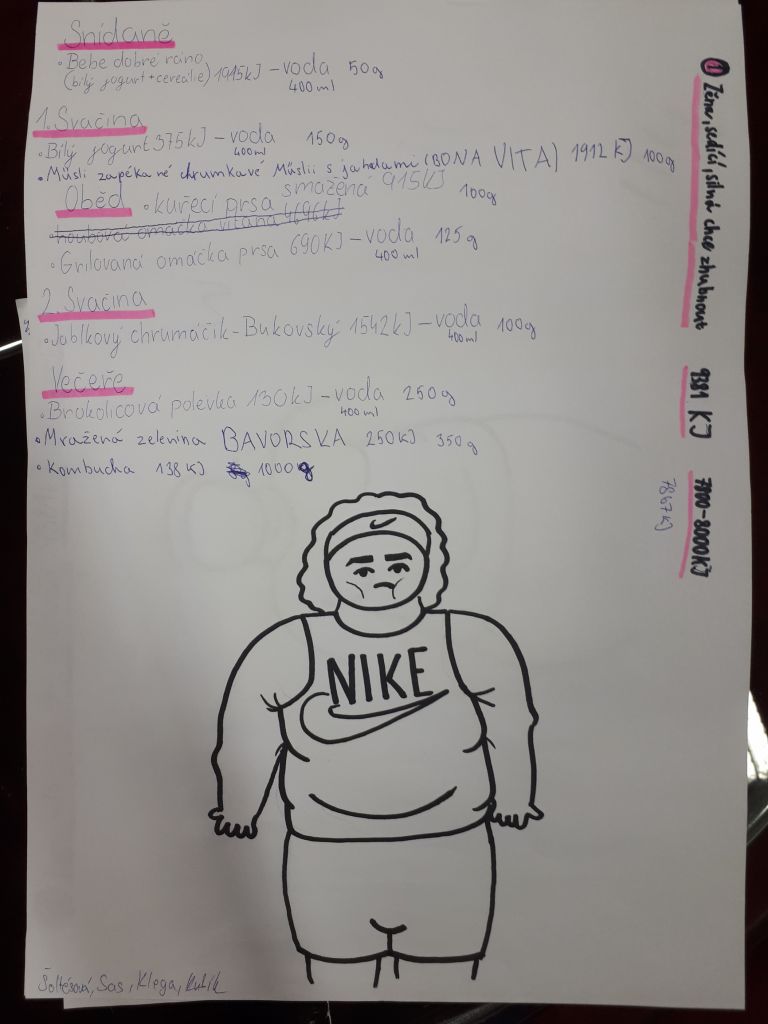 Snídaně
• Bebe dobré ráno
(bílý jogurt+cereálie) 1915kJ – voda 50g
400ml
1. Svačina
• Bílý jogurt 375kJ – voda 150g
400ml
• Müsli zapékané chrumkavé Müslii s jahodami (BONA VITA) 1912 kJ 100g
Oběd • kuřecí prsa smažená 915kJ 100g
• houbová omáčka vitana 4696kJ
• Grilovaná omáčka prsa 690KJ – voda 125g
400ml
2. Svačina
• Jablkový chrumáčik-Bukovský 1542kJ – voda 100g
400ml
Večeře
• Brokolicová polevka 130kJ – voda 250g
400ml
• Mražená zelenina BAVORSKA 250KJ 350g
• Kombucha 138KJ 1000g
1 Žena, sedící, silná chce zhubnout 9381 KJ 7900-8000KJ
7867KJ
NIKE
Šoltésová, Sas, Klega, Kulik